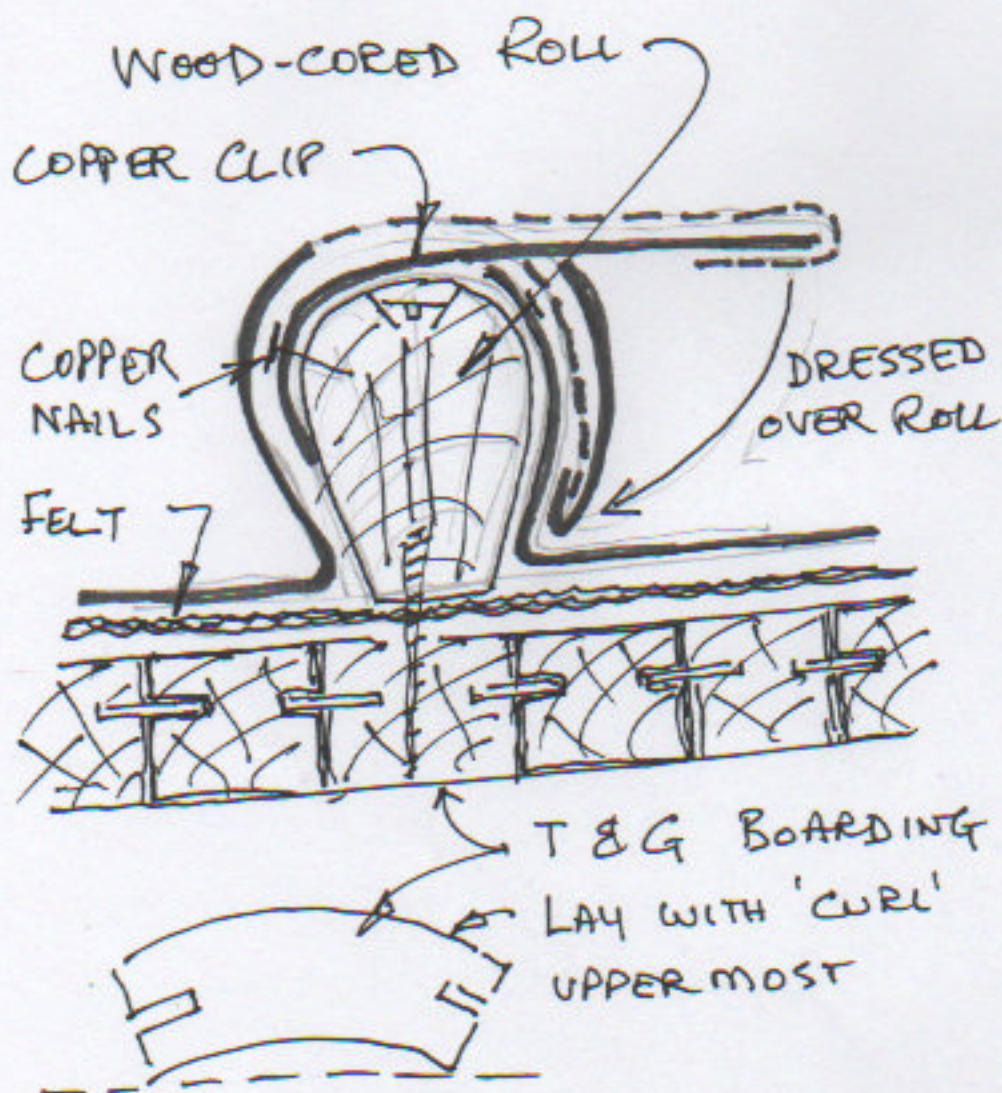 WOOD-CORED ROLL
COPPER CLIP
COPPER
NAILS
DRESSED
OVER ROLL
FELT
T & G BOARDING
LAY WITH 'CURL'
UPPERMOST